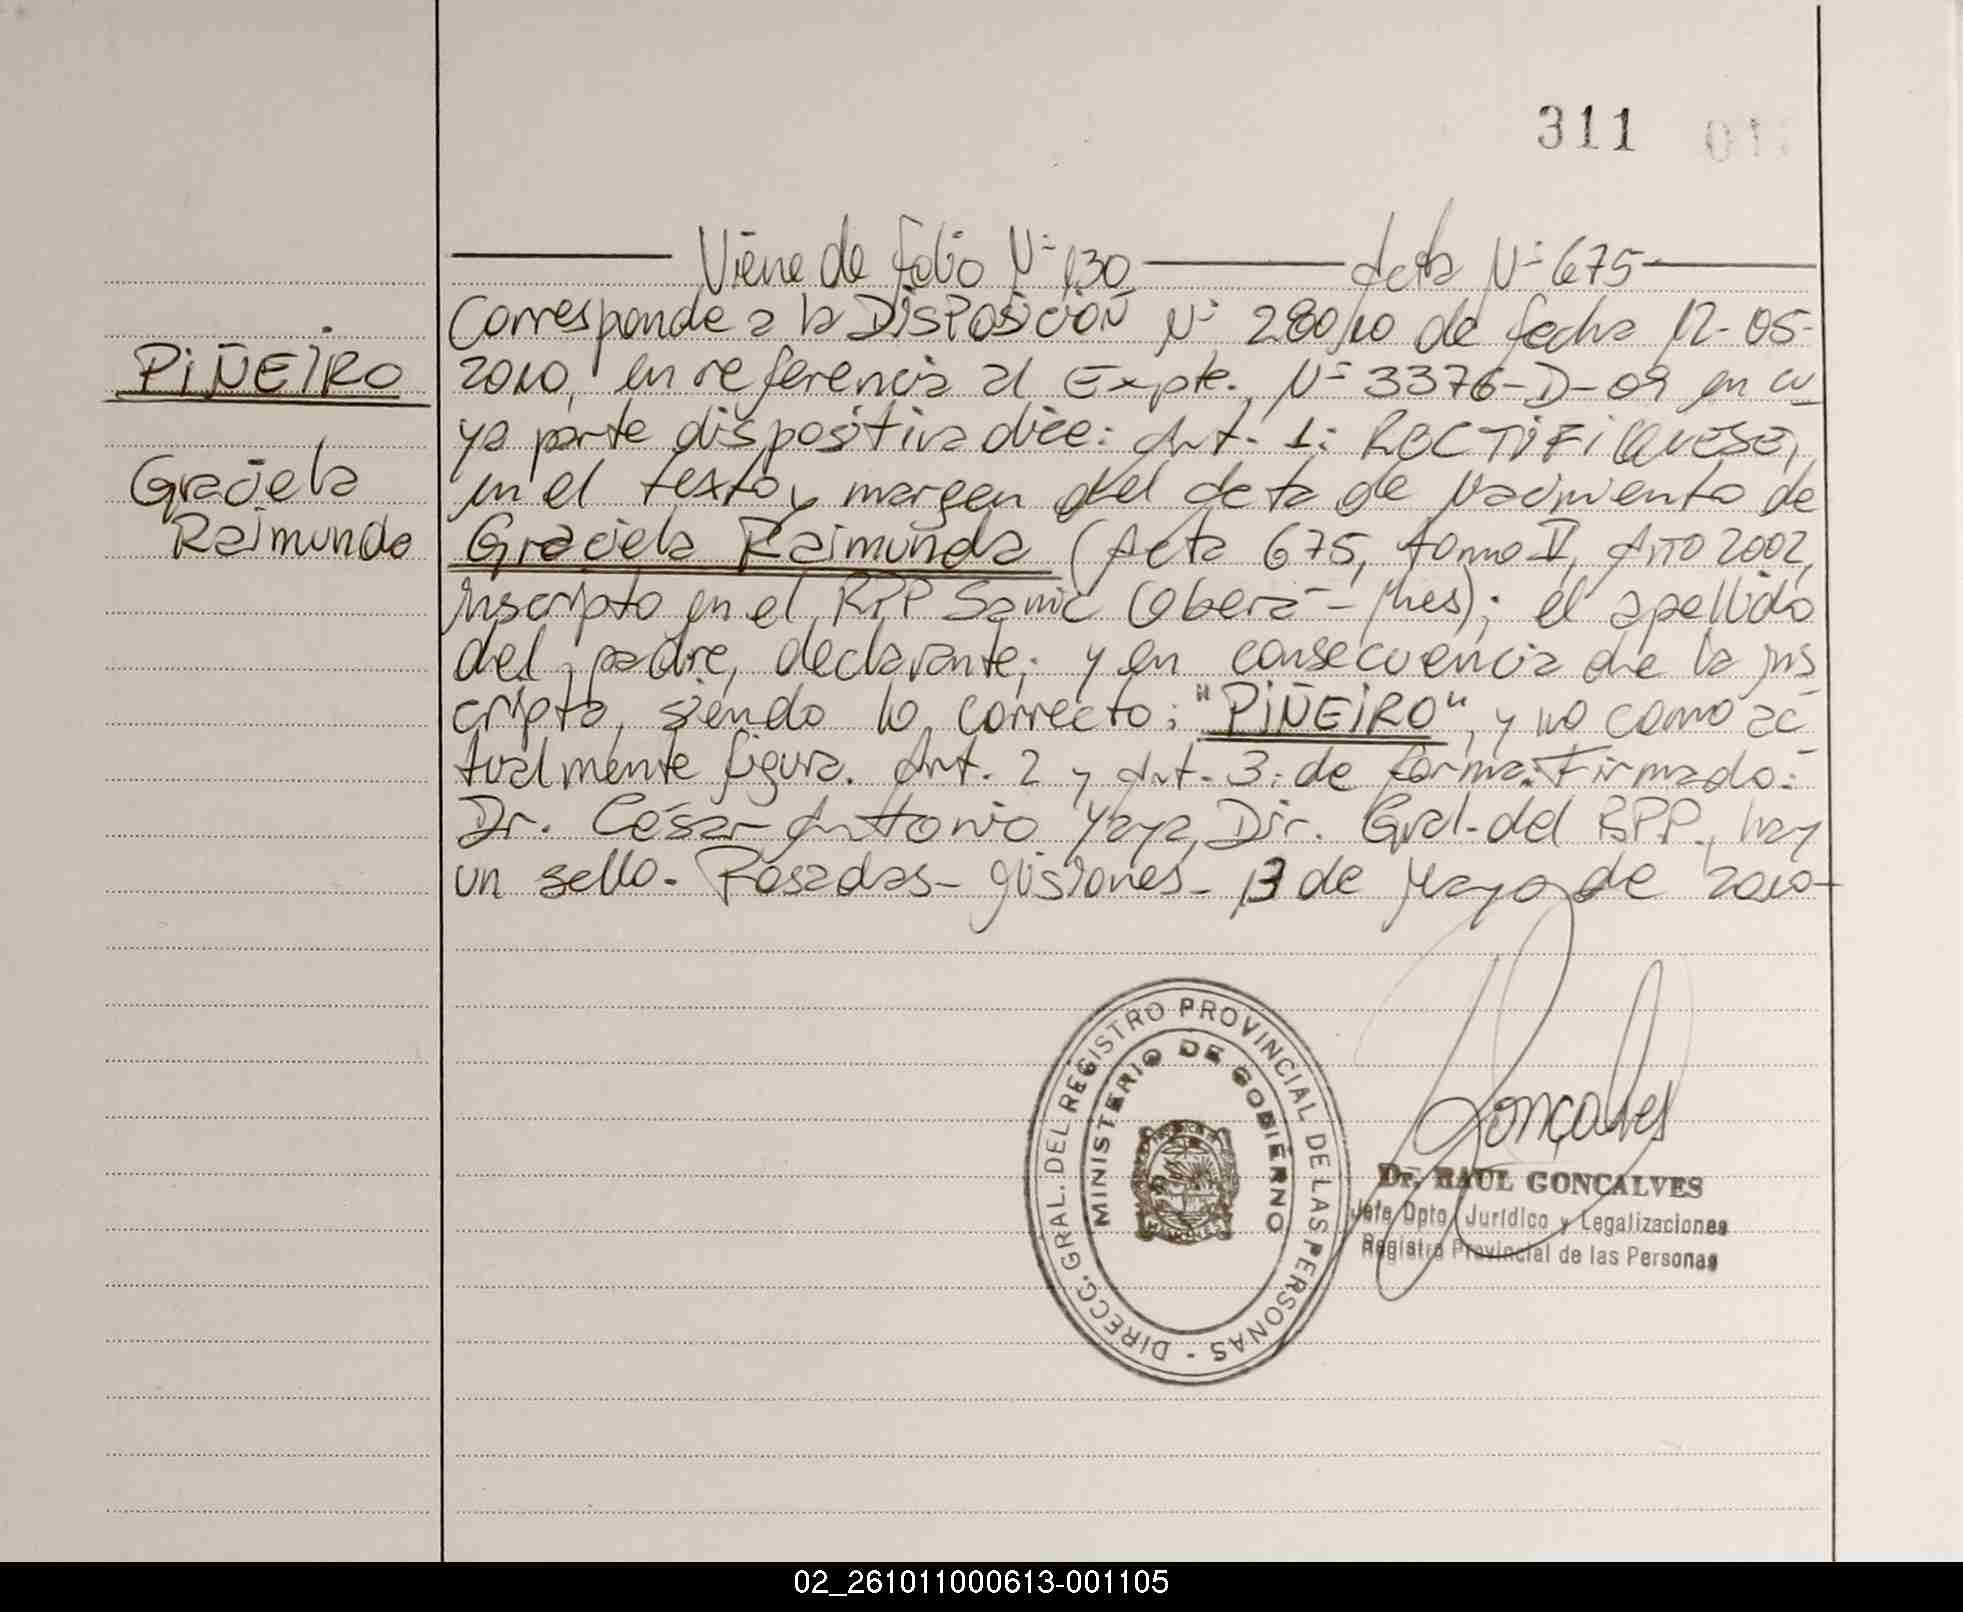 311 01
Viene de folio Nº 130 Acta Nº 675
Corresponde a la DISPOSICIÓN Nº 280/10 de fecha 12-05-
PIÑEIRO
2010, en referencia al Expte. Nº 3376-D-09 en cu
ya parte dispositiva dice: Art. 1: RECTIFIQUESE,
Graciela
en el texto y margen del Acta de Nacimiento de
Raimunda
Graciela Raimunda (Acta 675, tomo II, Año 2002,
inscripto en el RPP Samic (Oberá - Mnes); el apellido
del padre, declarante; y en consecuencia de la ins
cripta, siendo lo correcto: "PIÑEIRO", y no como ac
tualmente figura. Art. 2 y Art. 3: de forma. Firmado:
Dr. César Antonio Yaya, Dir. Gral. del RPP., hay
un sello. Posadas - Misiones - 13 de Mayo de 2010-
DIRECC. GRAL. DEL REGISTRO PROVINCIAL DE LAS PERSONAS -
MINISTERIO DE GOBIERNO
Gonçalves
Dr. RAUL GONCALVES
Jefe Dpto. Jurídico y Legalizaciones
Registro Provincial de las Personas
02_261011000613-001105